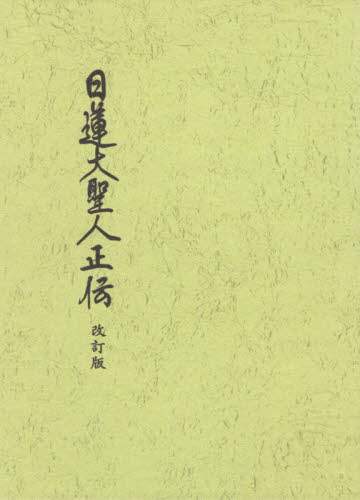 日蓮大聖人正伝
改訂版